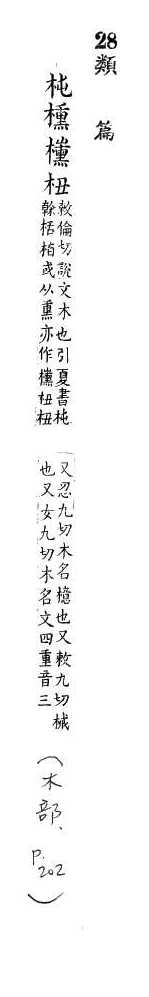 28 類篇
杶櫄杻
敕倫切說文木也引夏書杶
榦栝柏或从熏亦作杻杻
又忍九切木名檍也又敕九切械
也又女九切木名文四重音三
（木部、P.202）